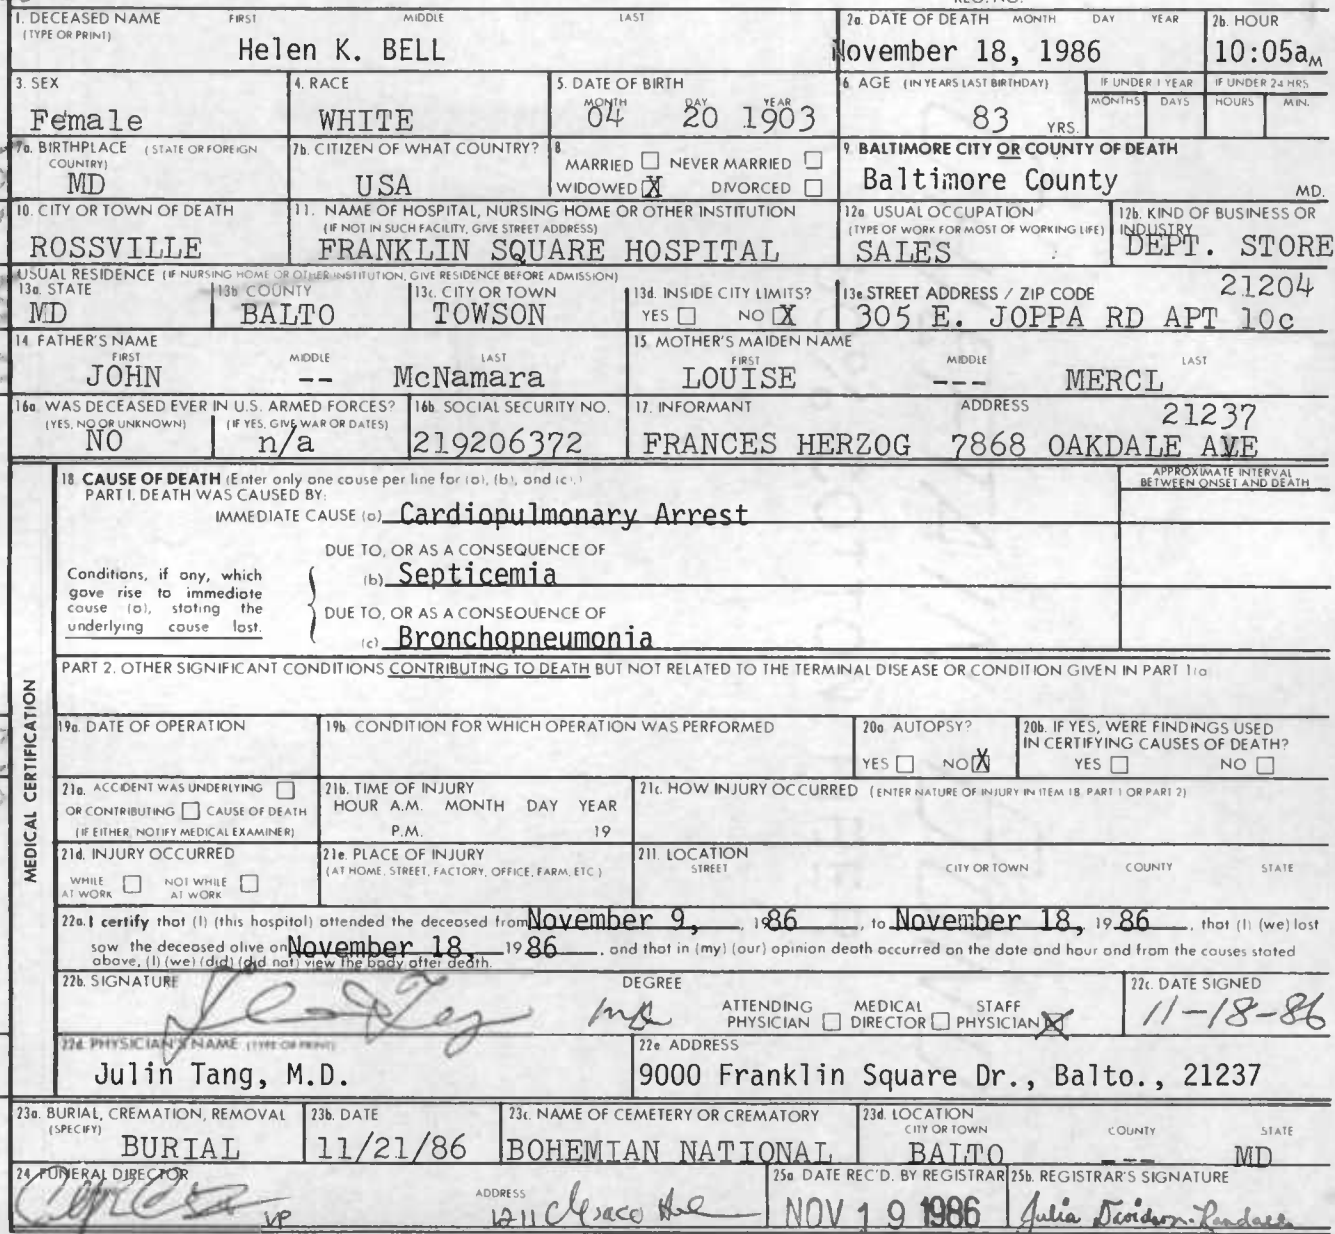 1. DECEASED NAME FIRST MIDDLE LAST
(TYPE OR PRINT)
Helen K. BELL
2a. DATE OF DEATH MONTH DAY YEAR
November 18, 1986
2b. HOUR
10:05a M
3. SEX
Female
4. RACE
WHITE
5. DATE OF BIRTH
MONTH DAY YEAR
04 20 1903
6 AGE (IN YEARS LAST BIRTHDAY)
83 YRS.
IF UNDER 1 YEAR
MONTHS DAYS
IF UNDER 24 HRS
HOURS MIN.
7a. BIRTHPLACE (STATE OR FOREIGN
COUNTRY)
MD
7b. CITIZEN OF WHAT COUNTRY?
USA
8
MARRIED NEVER MARRIED
WIDOWED X DIVORCED
9. BALTIMORE CITY OR COUNTY OF DEATH
Baltimore County MD.
10. CITY OR TOWN OF DEATH
ROSSVILLE
11. NAME OF HOSPITAL, NURSING HOME OR OTHER INSTITUTION
(IF NOT IN SUCH FACILITY, GIVE STREET ADDRESS)
FRANKLIN SQUARE HOSPITAL
12a USUAL OCCUPATION
(TYPE OF WORK FOR MOST OF WORKING LIFE)
SALES
12b. KIND OF BUSINESS OR
INDUSTRY
DEPT. STORE
USUAL RESIDENCE (IF NURSING HOME OR OTHER INSTITUTION, GIVE RESIDENCE BEFORE ADMISSION)
13a. STATE
MD
13b COUNTY
BALTO
13c. CITY OR TOWN
TOWSON
13d. INSIDE CITY LIMITS?
YES NO X
13e STREET ADDRESS / ZIP CODE 21204
305 E. JOPPA RD APT 10c
14 FATHER'S NAME
FIRST MIDDLE LAST
JOHN -- McNamara
15 MOTHER'S MAIDEN NAME
FIRST MIDDLE LAST
LOUISE --- MERCL
16a WAS DECEASED EVER IN U.S. ARMED FORCES?
(YES, NO OR UNKNOWN) (IF YES, GIVE WAR OR DATES)
NO n/a
16b. SOCIAL SECURITY NO.
219206372
17. INFORMANT ADDRESS 21237
FRANCES HERZOG 7868 OAKDALE AVE
MEDICAL CERTIFICATION
18 CAUSE OF DEATH (Enter only one cause per line for (a), (b), and (c).)
APPROXIMATE INTERVAL
BETWEEN ONSET AND DEATH
PART I. DEATH WAS CAUSED BY:
IMMEDIATE CAUSE (a) Cardiopulmonary Arrest
DUE TO, OR AS A CONSEQUENCE OF
(b) Septicemia
Conditions, if any, which
gave rise to immediate
cause (a), stating the
underlying cause last.
DUE TO, OR AS A CONSEQUENCE OF
(c) Bronchopneumonia
PART 2. OTHER SIGNIFICANT CONDITIONS CONTRIBUTING TO DEATH BUT NOT RELATED TO THE TERMINAL DISEASE OR CONDITION GIVEN IN PART 1(a
19a. DATE OF OPERATION
19b CONDITION FOR WHICH OPERATION WAS PERFORMED
20a AUTOPSY?
YES NO X
20b. IF YES, WERE FINDINGS USED
IN CERTIFYING CAUSES OF DEATH?
YES NO
21a. ACCIDENT WAS UNDERLYING
OR CONTRIBUTING CAUSE OF DEATH
(IF EITHER, NOTIFY MEDICAL EXAMINER)
21b. TIME OF INJURY
HOUR A.M. MONTH DAY YEAR
P.M. 19
21c. HOW INJURY OCCURRED (ENTER NATURE OF INJURY IN ITEM 18 PART 1 OR PART 2)
21d. INJURY OCCURRED
WHILE AT WORK NOT WHILE AT WORK
21e. PLACE OF INJURY
(AT HOME, STREET, FACTORY, OFFICE, FARM, ETC)
21f. LOCATION
STREET CITY OR TOWN COUNTY STATE
22a. I certify that (I) (this hospital) attended the deceased from November 9, 1986, to November 18, 1986, that (I) (we) last
saw the deceased alive on November 18, 1986, and that in (my) (our) opinion death occurred on the date and hour and from the causes stated
above, (I) (we) (did) (did not) view the body after death.
22b. SIGNATURE
DEGREE
ATTENDING PHYSICIAN MEDICAL DIRECTOR STAFF PHYSICIAN X
22c. DATE SIGNED
11-18-86
22d PHYSICIAN'S NAME (TYPE OR PRINT)
Julin Tang, M.D.
22e ADDRESS
9000 Franklin Square Dr., Balto., 21237
23a. BURIAL, CREMATION, REMOVAL
(SPECIFY)
BURIAL
23b. DATE
11/21/86
23c. NAME OF CEMETERY OR CREMATORY
BOHEMIAN NATIONAL
23d. LOCATION
CITY OR TOWN COUNTY STATE
BALTO --- MD
24 FUNERAL DIRECTOR
VP
ADDRESS
1211 Chesaco Ave
25a DATE REC'D. BY REGISTRAR
NOV 19 1986
25b. REGISTRAR'S SIGNATURE
Julia Davidson-Randall